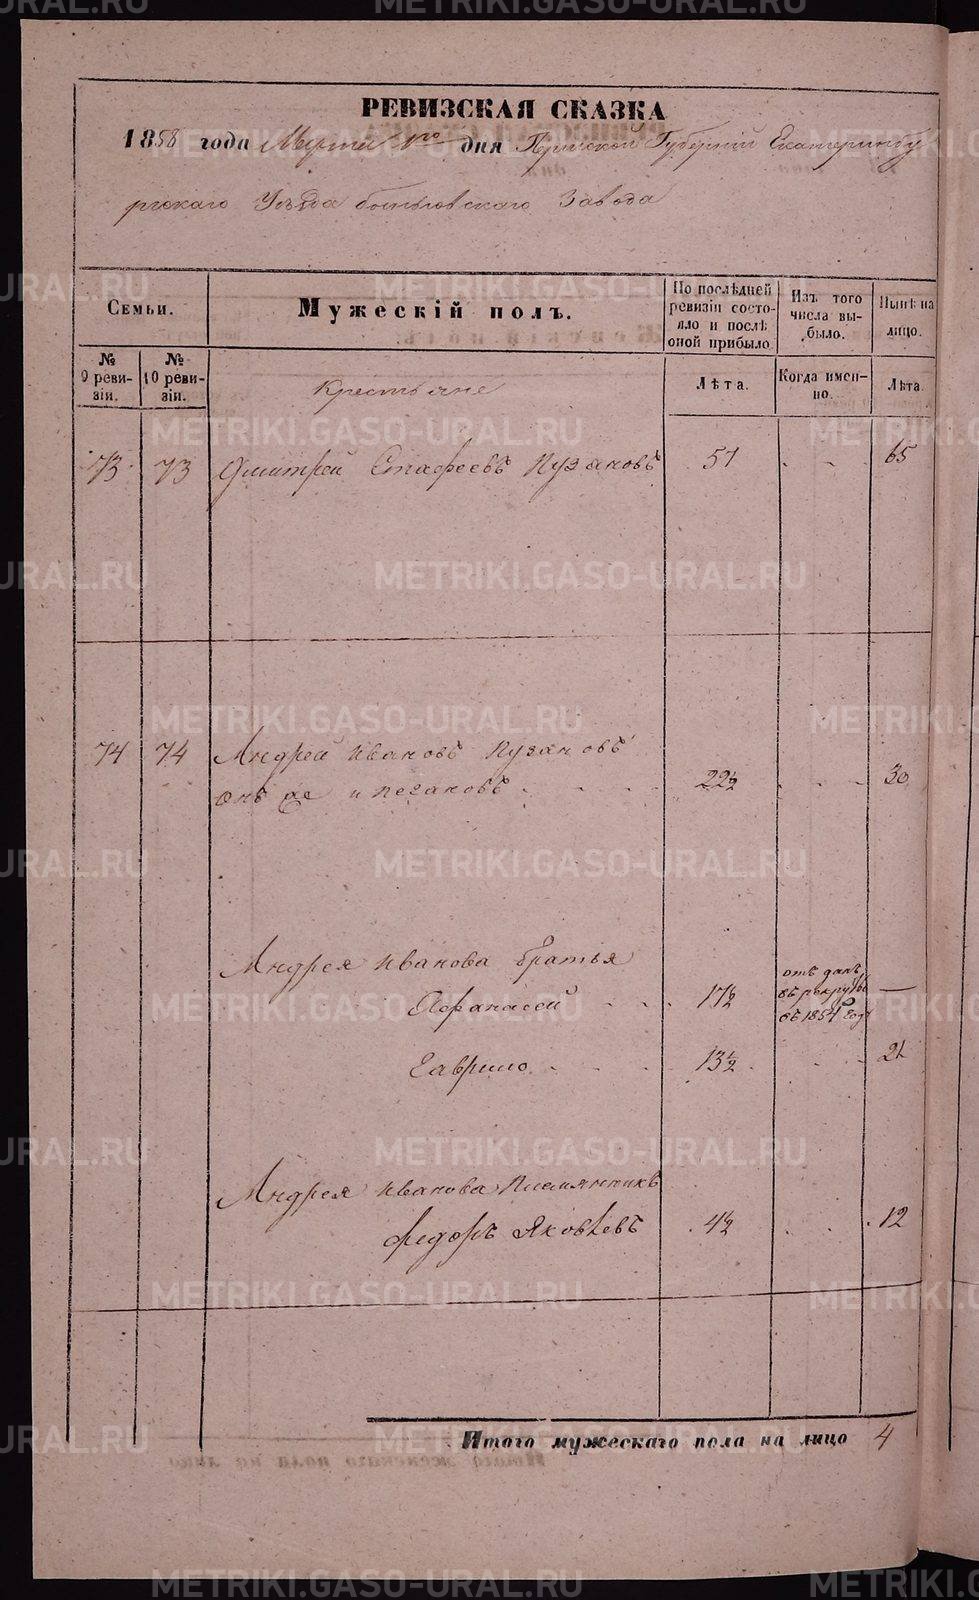 РЕВИЗСКАЯ СКАЗКА
1858 года Марта 1го дня Пермской Губерніи Екатеринбу
ргскаго Уѣзда Завода
Семьи.
Мужескій полъ.
По послѣдней ревизіи состояло и послѣ оной прибыло.
Изъ того числа выбыло.
Нынѣ на лицо.
№ 9 ревизія.
№ 10 ревизіи.
Крестьяне
Лѣта.
Когда именно.
Лѣта.
73 73 Дмитрей Евстафеевъ Пузановъ 51 65
74 74 Андрей Ивановъ Пузановъ
онъ же и Пезановъ 22½ 30
Андрея Иванова братья
Афанасей 17½ отъ данъ въ рекруты въ 1854 году —
Гаврило 13½ 21
Андрея Иванова племянникъ
Федоръ Яковлевъ 4½ 12
Итого мужескаго пола на лицо 4
METRIKI.GASO-URAL.RU